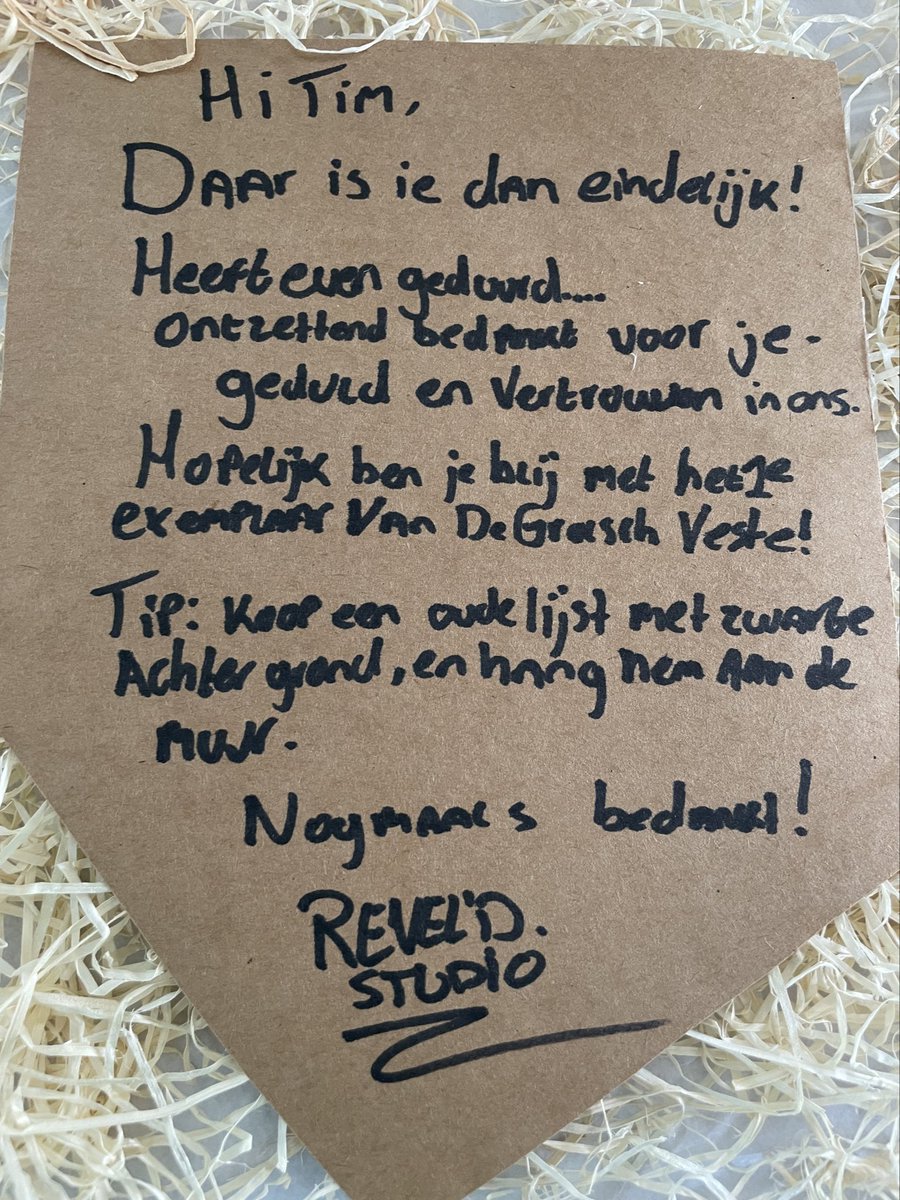 Hi Tim,
Daar is ie dan eindelijk!
Heeft even geduurd....
ontzettend bedankt voor je
geduld en vertrouwen in ons.
Hopelijk ben je blij met het 1e
exemplaar van De Grolsch Veste!
Tip: Koop een oude lijst met zwarte
Achtergrond, en hang hem aan de
muur.
Nogmaals bedankt!
REVEL'D.
STUDIO